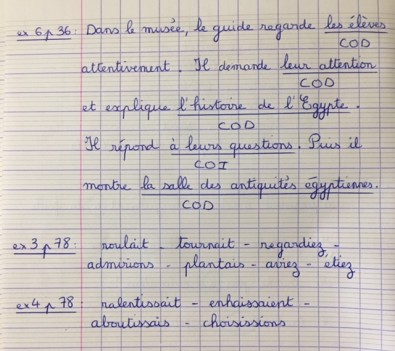 ex 6 p 36 : Dans le musée, le guide regarde les élèves
COD
attentivement. Il demande leur attention
COD
et explique l'histoire de l'Egypte.
COD
Il répond à leurs questions. Puis il
COI
montre la salle des antiquités égyptiennes.
COD
ex 3 p 78 : roulait - tournait - regardiez -
admirions - plantais - aviez - etiez
ex 4 p 78 : ralentissait - envahissaient -
aboutissais - choisissions